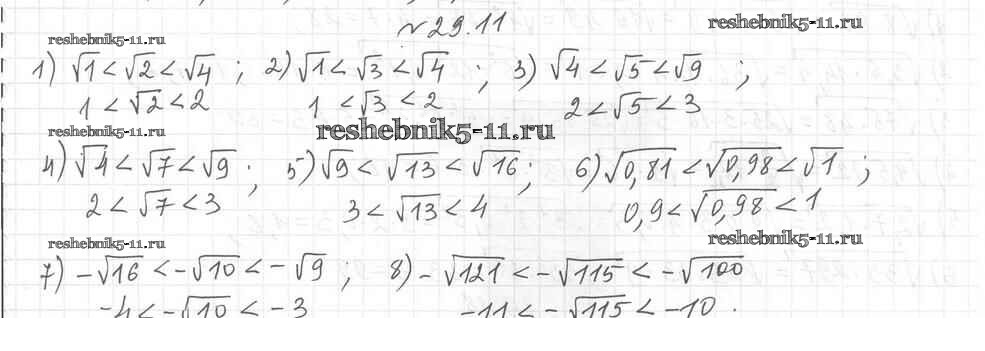 №29.11
reshebnik5-11.ru
reshebnik5-11.ru
1) √1 < √2 < √4 ; 2) √1 < √3 < √4 ; 3) √4 < √5 < √9 ;
1 < √2 < 2 1 < √3 < 2 2 < √5 < 3
reshebnik5-11.ru
reshebnik5-11.ru
4) √4 < √7 < √9 ; 5) √9 < √13 < √16 ; 6) √0,81 < √0,98 < √1 ;
2 < √7 < 3 3 < √13 < 4 0,9 < √0,98 < 1
reshebnik5-11.ru
reshebnik5-11.ru
7) -√16 < -√10 < -√9 ; 8) -√121 < -√115 < -√100
-4 < -√10 < -3 -11 < -√115 < -10 .